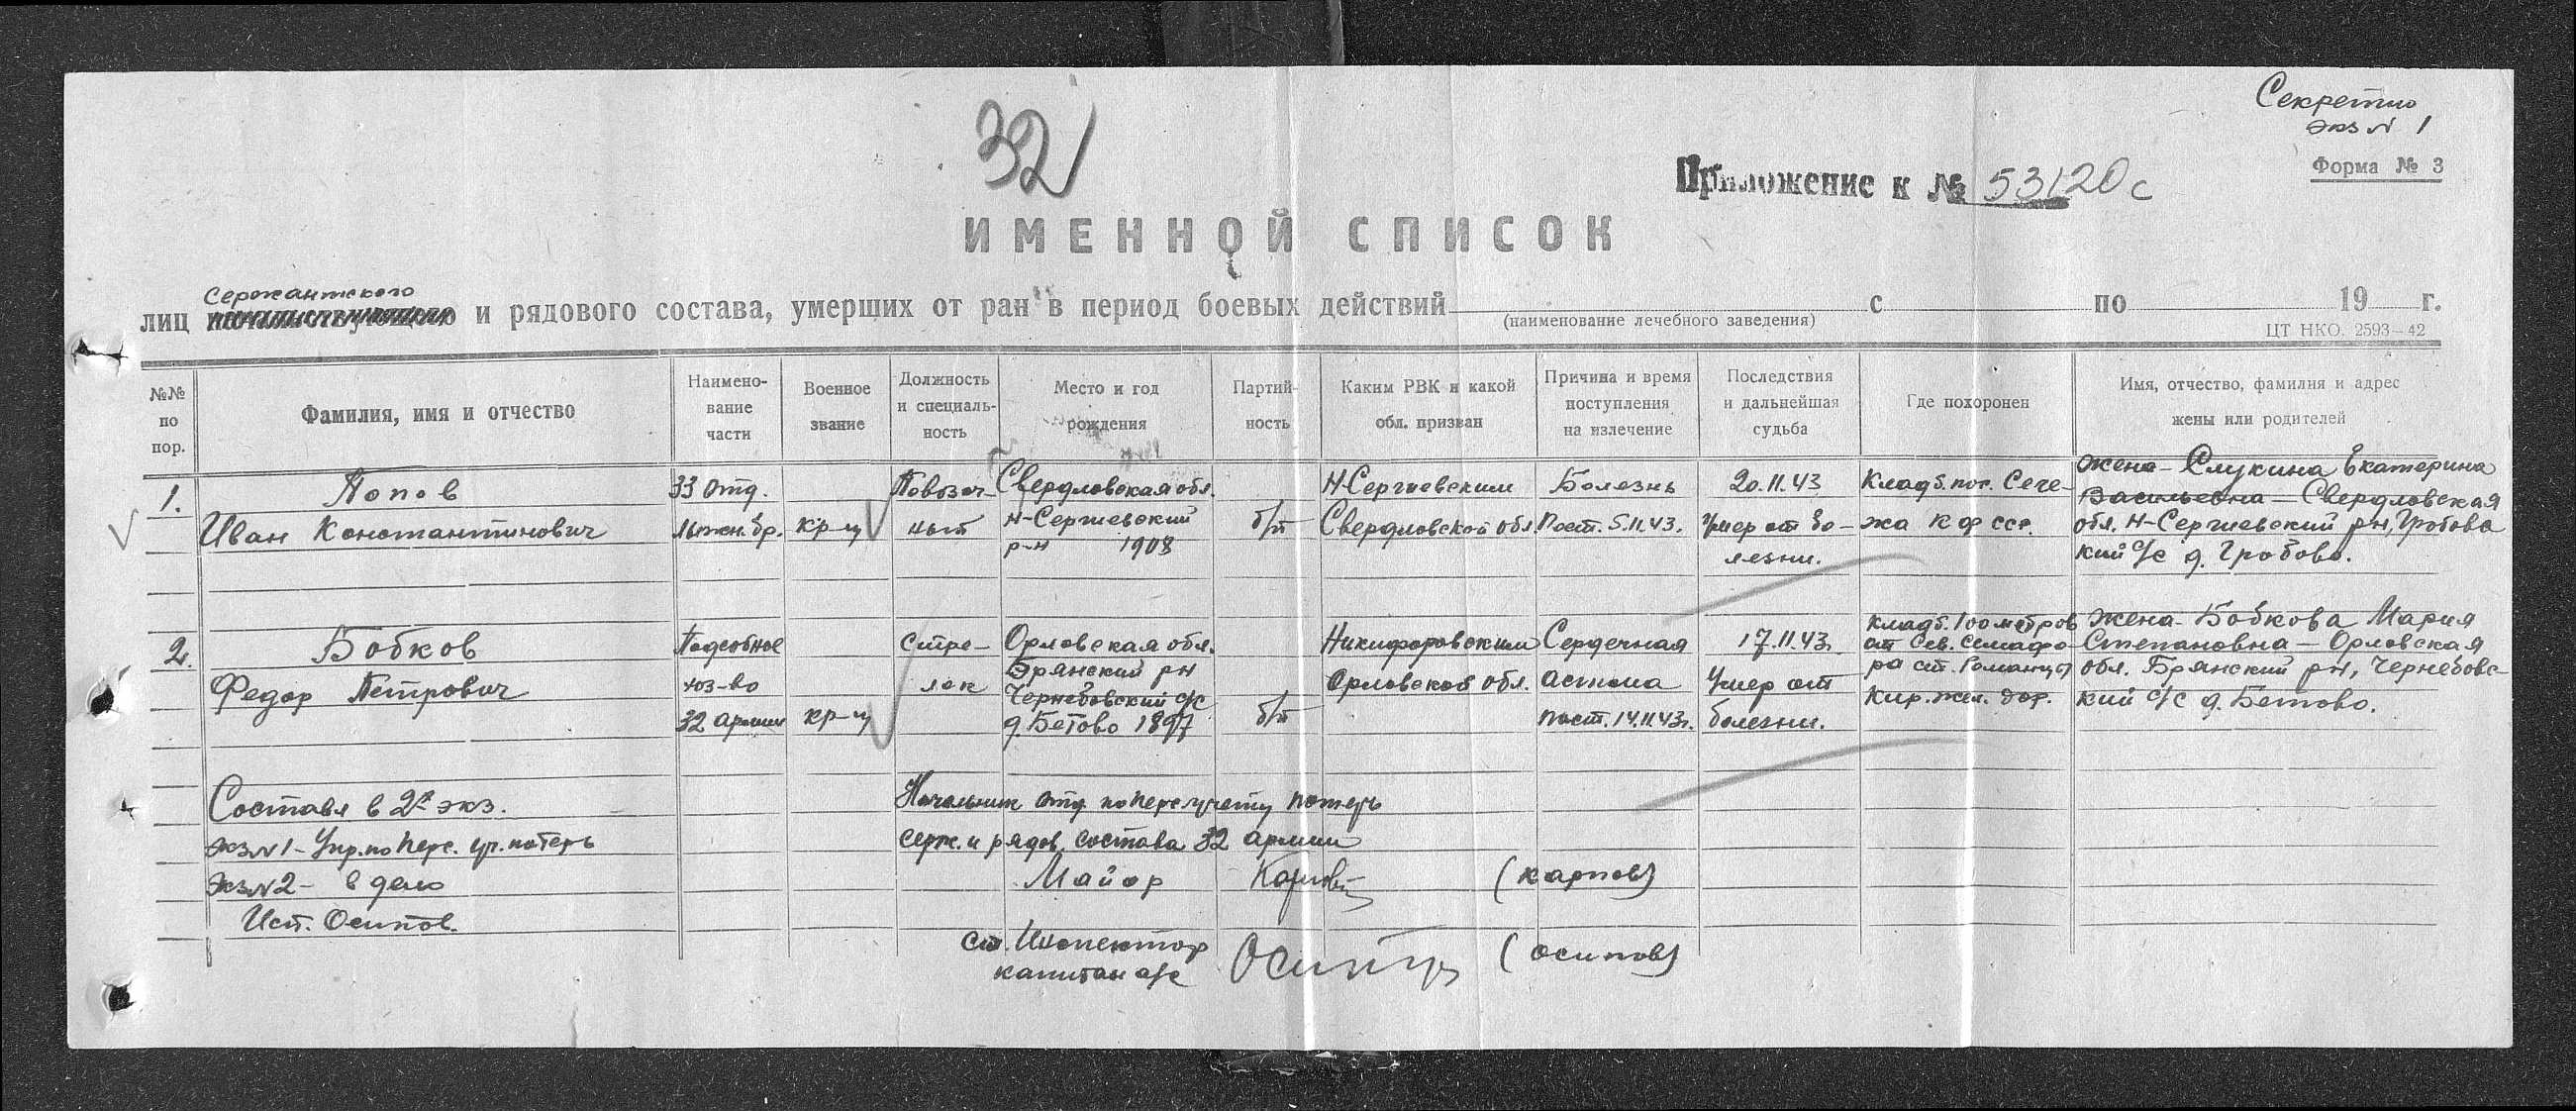 Секретно
экз № 1
32
Приложение к № 53120с
Форма № 3
ИМЕННОЙ СПИСОК
Сержантского
лиц и рядового состава, умерших от ран в период боевых действий с по 19 г.
(наименование лечебного заведения)
ЦТ НКО. 2593–42
№№ по пор.
Фамилия, имя и отчество
Наимено-
вание
части
Военное
звание
Должность
и специаль-
ность
Место и год
рождения
Партий-
ность
Каким РВК и какой
обл. призван
Причина и время
поступления
на излечение
Последствия
и дальнейшая
судьба
Где похоронен
Имя, отчество, фамилия и адрес
жены или родителей
1.
Попов
Иван Константинович
33 отд.
лыжн. бр.
кр-ц
Повозоч-
ный
Свердловская обл.
Н-Сергиевский
р-н 1908
б/п
Н-Сергиевским
Свердловской обл.
Болезнь
Пост. 5.11.43.
20.11.43
Умер от бо-
лезни.
Кладб. пос. Сеге-
жа КФССР.
Жена – Слукина Екатерина
Васильевна – Свердловская
обл. Н-Сергиевский рн, Гробово
кий с/с д. Гробово.
2.
Бобков
Федор Петрович
Подсобное
хоз-во
32 армии
кр-ц
Стре-
лок
Орловская обл.
Брянский рн
Чернебовский с/с
д. Бетово 1897
б/п
Никифоровским
Орловской обл.
Сердечная
астма
пост. 14.11.43г.
17.11.43.
Умер от
болезни.
кладб. 100 метров
от Сев. семафо-
ра ст.
Кир. жел. дор.
Жена – Бобкова Мария
Степановна – Орловская
обл. Брянский рн, Чернебовс-
кий с/с д. Бетово.
Составл в 2х экз.
экз№1 – Упр. по перс. уч. потерь
Экз№2 – в дело
Исп. Осипов.
Начальник отд. по перс. учету потерь
серж. и рядов. состава 32 армии
Майор Карпов (Карпов)
Ст. Инспектор
капитан а/с Осипов (Осипов)